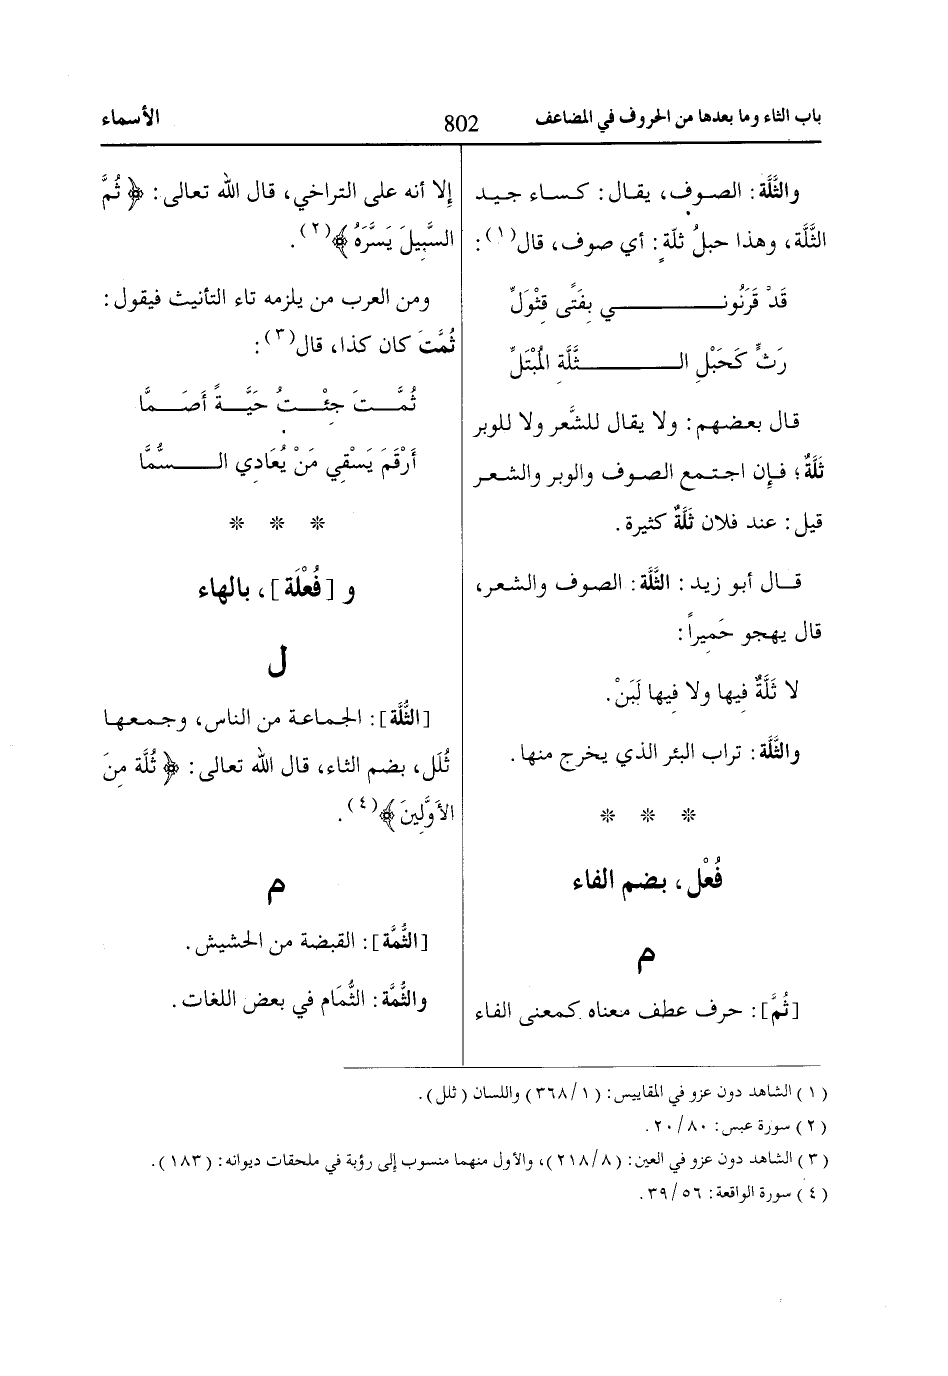 باب الثاء وما بعدها من الحروف في المضاعف
802
الأسماء
والثَّلَّة: الصوف، يقال: كساء جيد
الثَّلَّة، وهذا حبلُ ثلّةٍ: أي صوف، قال(١):
قَدْ قَرَنُونــــــــــي بِفَتًى قِثْوَلِّ
رَثٍّ كَحَبْلِ الــــــــــثَّلَّةِ المُبْتَلِّ
قال بعضهم: ولا يقال للشَّعر ولا للوبر
ثَلَّةٌ؛ فإن اجتمع الصوف والوبر والشعر
قيل: عند فلان ثَلَّةٌ كثيرة.
قال أبو زيد: الثَّلَّة: الصوف والشعر،
قال يهجو حَمِيراً:
لا ثَلَّةٌ فيها ولا فيها لَبَنْ.
والثَّلَّة: تراب البئر الذي يخرج منها.
* * *
فُعْل، بضم الفاء
م
[ثُمَّ]: حرف عطف معناه كمعنى الفاء
إلا أنه على التراخي، قال الله تعالى: ﴿ ثُمَّ
السَّبِيلَ يَسَّرَهُ ﴾(٢).
ومن العرب من يلزمه تاء التأنيث فيقول:
ثُمَّتَ كان كذا، قال(٣):
ثُمَّـــتَ جِئْـــتُ حَيَّـــةً أَصَـــمَّا
أَرْقَمَ يَسْقِي مَنْ يُعَادِي الـــــسُّمَّا
* * *
و [فُعْلَة]، بالهاء
ل
[الثُّلَّة]: الجماعة من الناس، وجمعها
ثُلَل، بضم الثاء، قال الله تعالى: ﴿ ثُلَّة مِنَ
الأَوَّلِينَ ﴾(٤).
م
[الثُّمَّة]: القبضة من الحشيش.
والثُّمَّة: الثُّمَام في بعض اللغات.
(١) الشاهد دون عزو في المقاييس: (١/٣٦٨) واللسان (ثلل).
(٢) سورة عبس: ٨٠/ ٢٠.
(٣) الشاهد دون عزو في العين: (٨/ ٢١٨)، والأول منهما منسوب إلى رؤبة في ملحقات ديوانه: (١٨٣).
(٤) سورة الواقعة: ٥٦/ ٣٩.